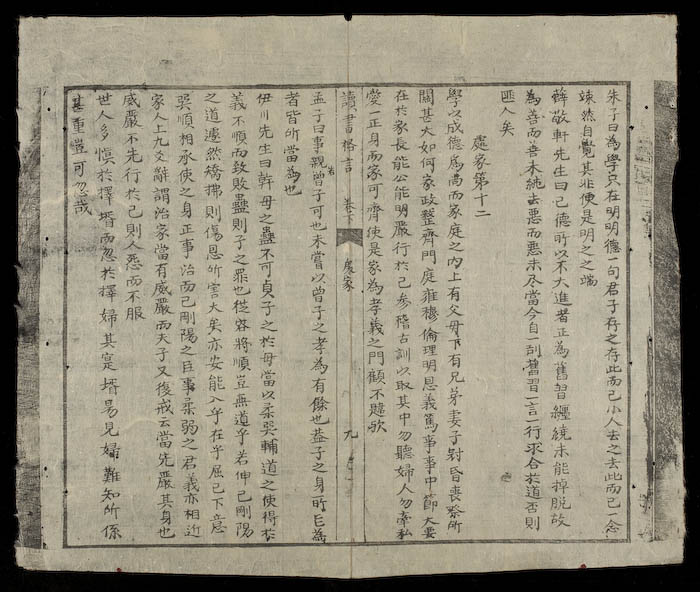 朱子曰為學只在明明德一句君子存之存此而已小人去之去此而已一念
竦然自覺其非使是明之之端
薛敬軒先生曰己德所以不大進者正為舊習纏繞未能掉脫故
為善而善未純去惡而惡未尽當今自一刮舊習一言一行求合於道否則
匪人矣
處家第十二
學以成德為尚而家庭之內上有父母下有兄弟妻子對昏喪祭所
關甚大如何家政整齊門庭雍穆倫理明恩義篤事事中節大要
在於家長能公能明嚴行於己參稽古訓以取其中勿聽婦人勿牽私
愛一正身而家可齊使是家為孝義之門顧不韙歟
讀書格言 卷下 處家 九
孟子曰事親若曾子可也未嘗以曾子之孝為有餘也盖子之身所㠯為
者皆所當為也
伊川先生曰幹母之蠱不可貞子之於母當以柔巽輔道之使得於
義不順而致敗蠱則子之罪也從容將順豈無道乎若伸己剛陽
之道遽然矯拂則傷恩所害大矣亦安能入乎在乎屈己下意
巽順相承使之身正事治而已剛陽之臣事柔弱之君義亦相近
家人上九爻辭謂治家當有威嚴而夫子又復戒云當先嚴其身也
威嚴不先行於己則人惡而不服
世人多慎於擇壻而忽於擇婦其寔壻易見婦難知所係
甚重豈可忽哉